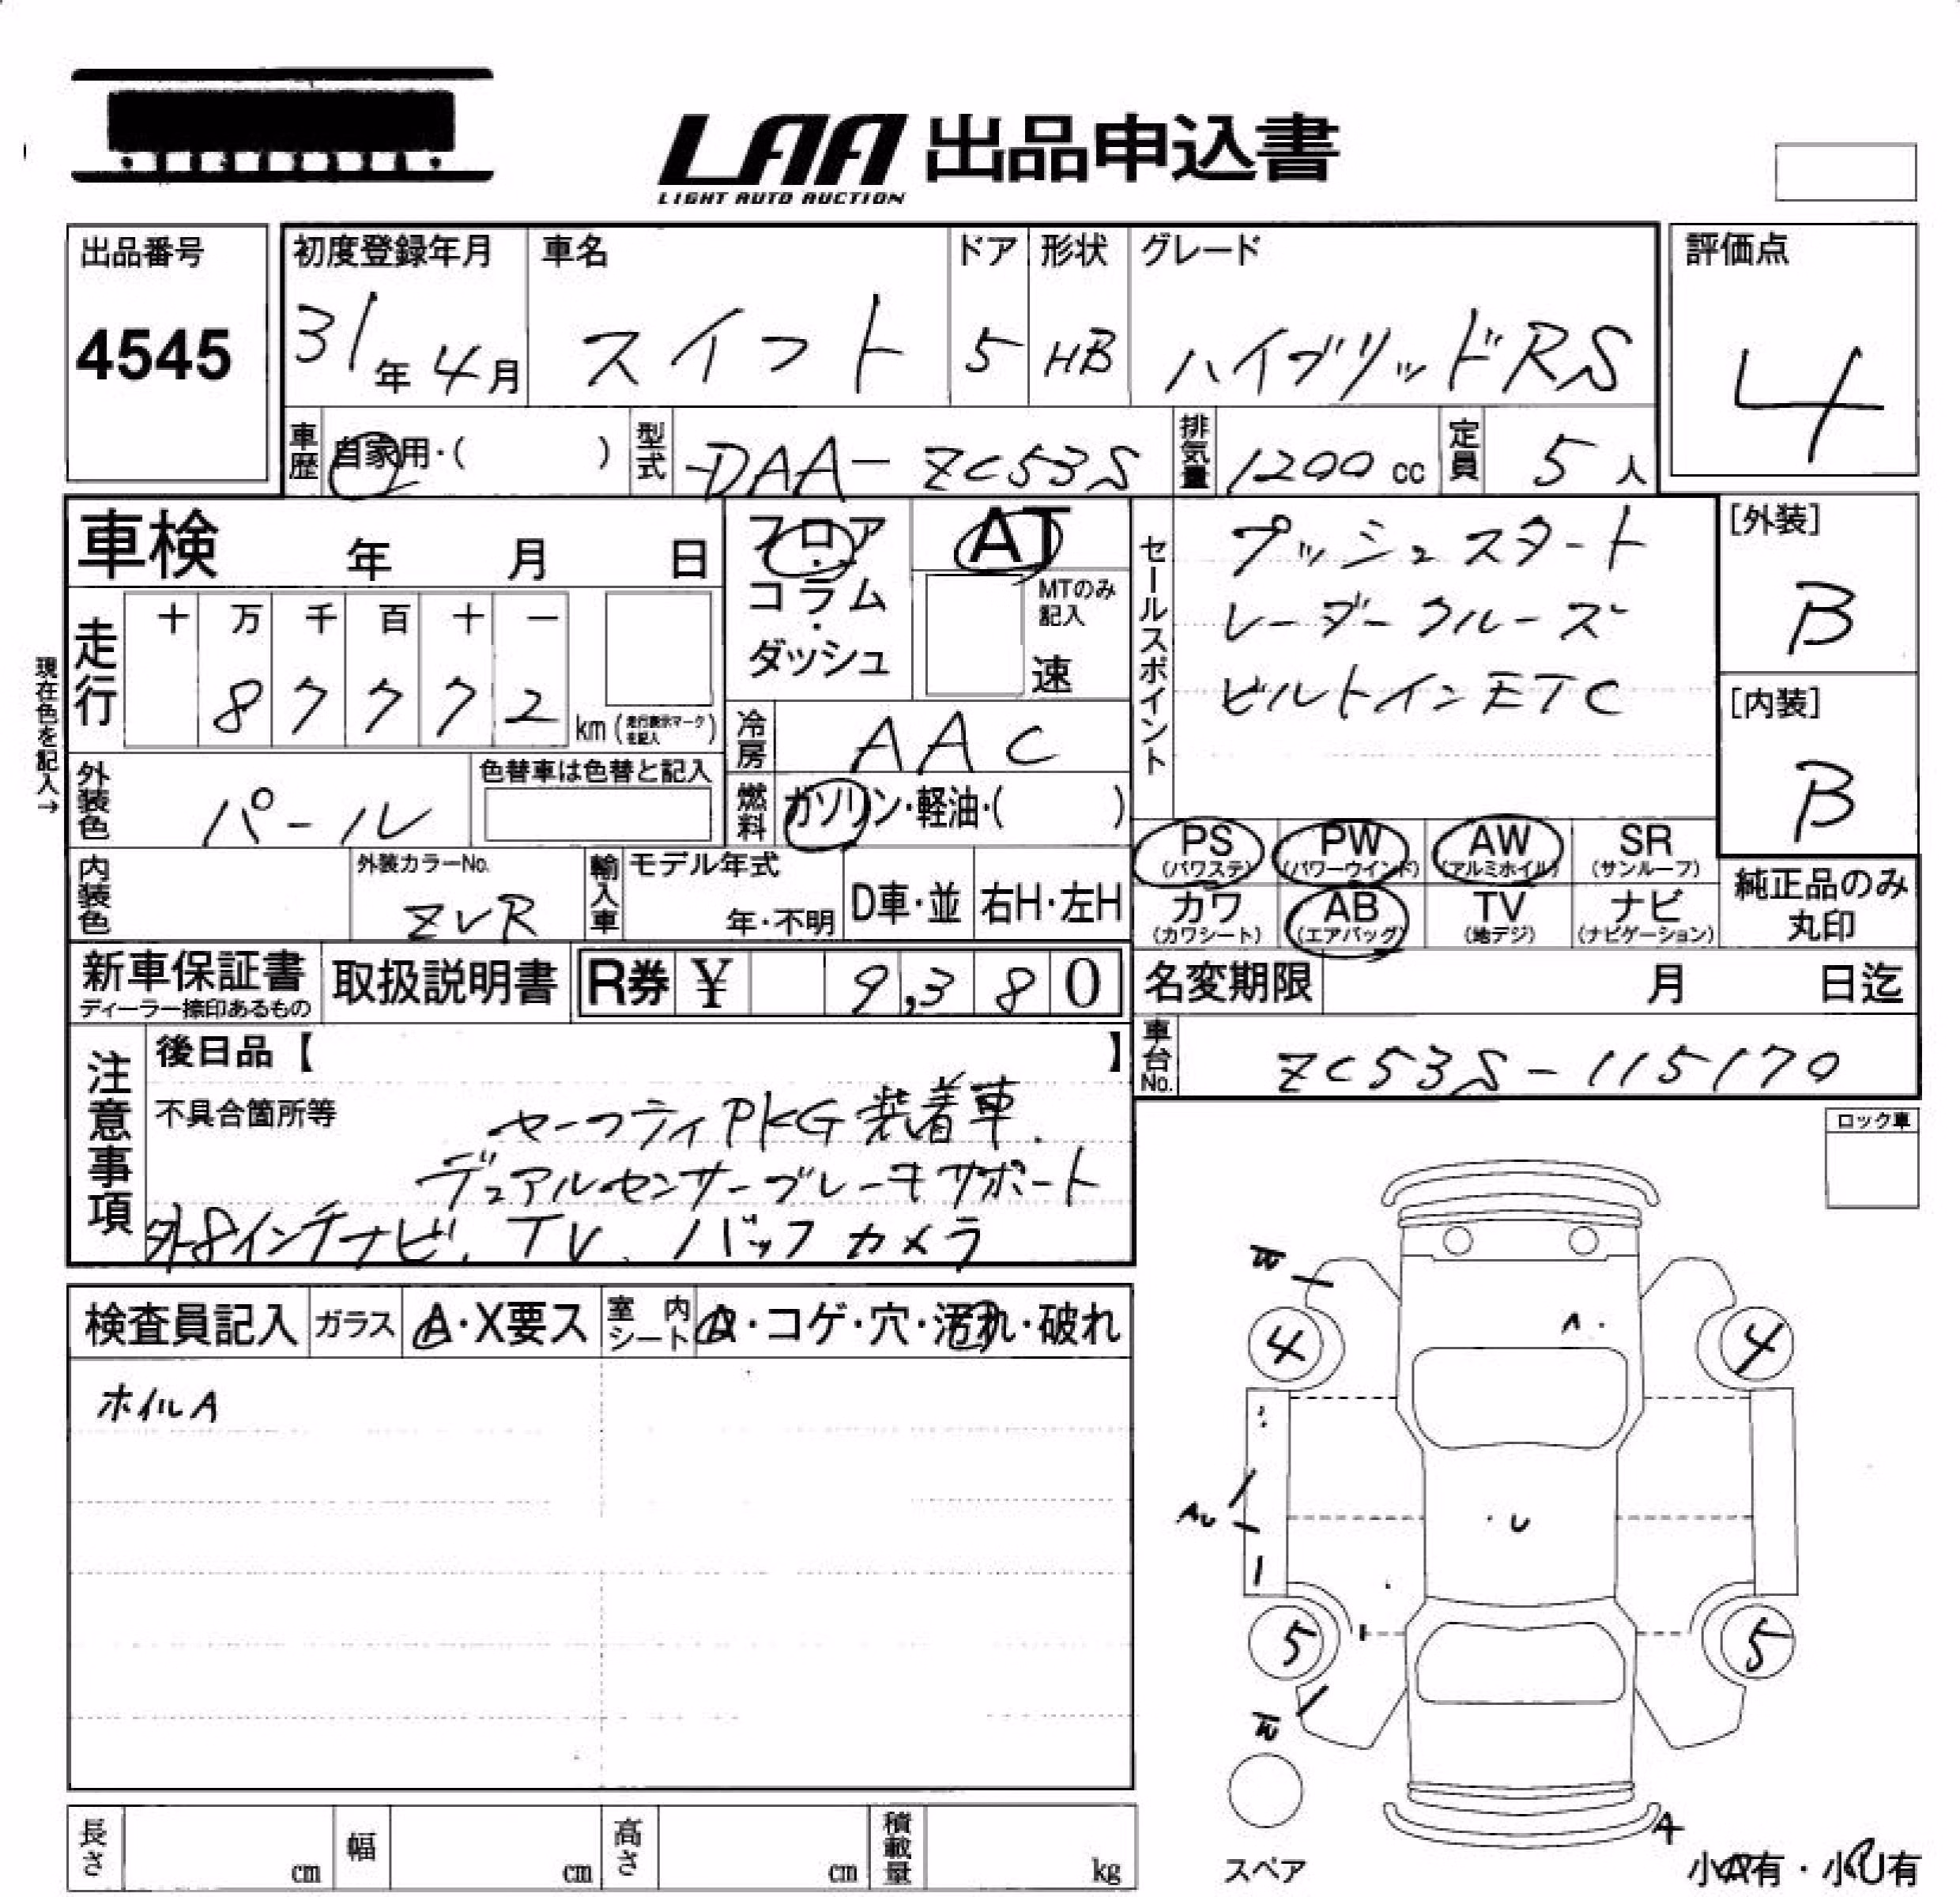 LAA 出品申込書
LIGHT AUTO AUCTION
出品番号
4545
初度登録年月
31年4月
車名
スイフト
ドア
5
形状
HB
グレード
ハイブリッドRS
評価点
4
車歴
自家用・( )
型式
DAA-ZC53S
排気量
1200cc
定員
5人
車検 年 月 日
フロア・コラム・ダッシュ
AT
MTのみ記入
速
セールスポイント
プッシュスタート
レーダークルーズ
ビルトインETC
[外装]
B
[内装]
B
現在色を記入→
走行
十 万 千 百 十 一
8 7 7 7 2
km (走行表示マークを記入)
冷房
AAC
外装色
パール
色替車は色替と記入
燃料
ガソリン・軽油・( )
PS (パワステ)
PW (パワーウインド)
AW (アルミホイル)
SR (サンルーフ)
カワ (カワシート)
AB (エアバッグ)
TV (地デジ)
ナビ (ナビゲーション)
純正品のみ丸印
内装色
外装カラーNo.
ZVR
輸入車
モデル年式
年・不明
D車・並
右H・左H
新車保証書
ディーラー捺印あるもの
取扱説明書
R券 ¥ 9,380
名変期限 月 日迄
車台No.
ZC53S-115170
注意事項
後日品【 】
不具合箇所等
セーフティPKG装着車.
デュアルセンサーブレーキサポート
外8インチナビ、TV、バックカメラ
ロック車
検査員記入
ガラス
A・X要ス
室内シート
・コゲ・穴・汚れ・破れ
ホイルA
4
4
AU
U
5
5
スペア
A
小A有・小U有
長さ cm
幅 cm
高さ cm
積載量 kg